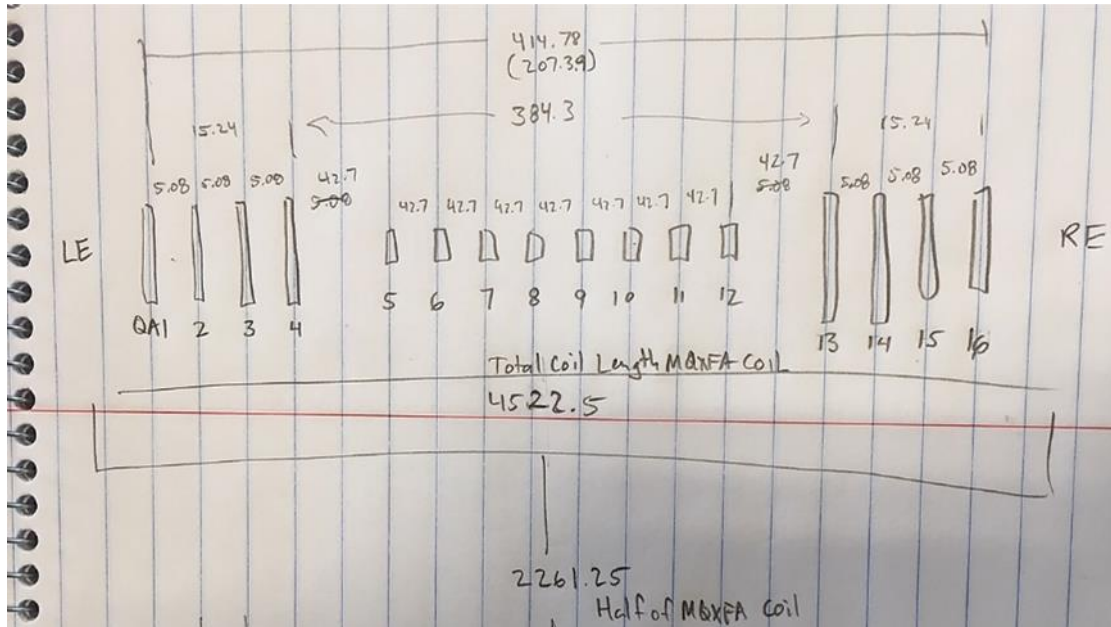 414.78
(207.39)
384.3
15.24
15.24
5.08 5.08 5.08 42.7 42.7 5.08 5.08 5.08
5.08 42.7 42.7 42.7 42.7 42.7 42.7 42.7 5.08
LE RE
QA1 2 3 4 5 6 7 8 9 10 11 12 13 14 15 16
Total Coil Length MQXFA COIL
4522.5
2261.25
Half of MQXFA Coil